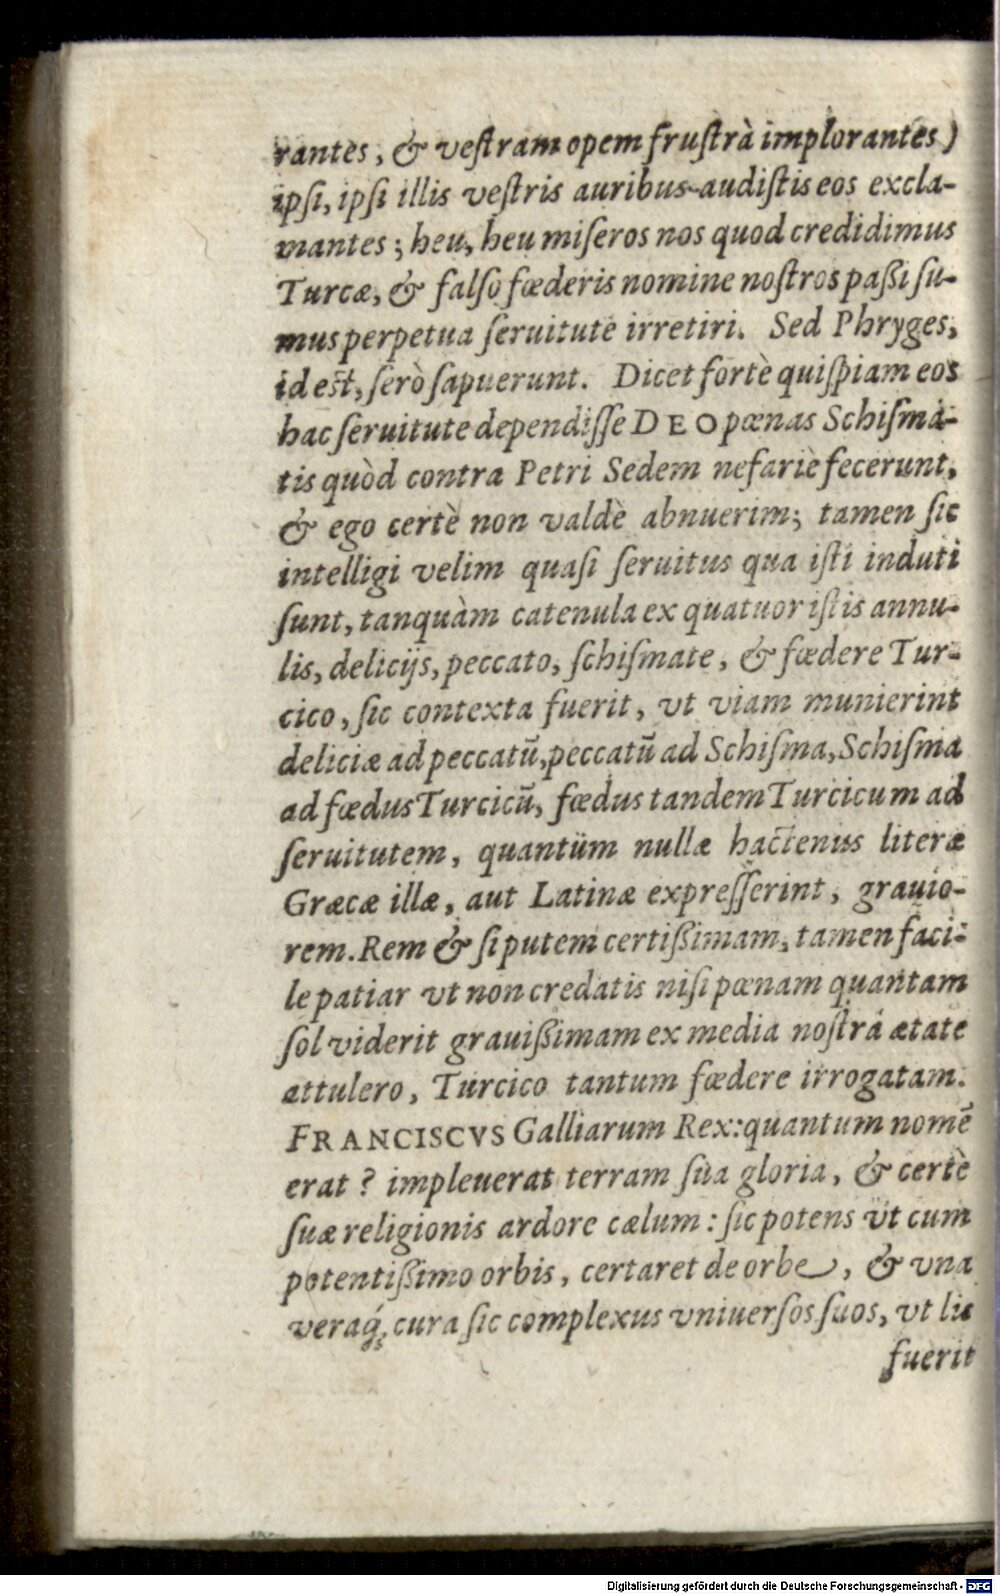 rantes, & veſtram opem fruſtrà implorantes)
ipſi, ipſi illis veſtris auribus audiſtis eos excla-
mantes; heu, heu miſeros nos quod credidimus
Turcæ, & falſo fœderis nomine noſtros paßi ſu-
mus perpetua ſeruitute irretiri. Sed Phryges,
id est, ſerò ſapuerunt. Dicet fortè quiſpiam eos
hac ſeruitute dependiſſe DEO pœnas Schiſma-
tis quòd contra Petri Sedem nefariè fecerunt,
& ego certè non valdè abnuerim; tamen ſic
intelligi velim quaſi ſeruitus qua iſti induti
ſunt, tanquàm catenula ex quatuor iſtis annu-
lis, delicijs, peccato, ſchiſmate, & fœdere Tur-
cico, ſic contexta fuerit, vt viam munierint
deliciæ ad peccatū, peccatū ad Schiſma, Schiſma
ad fœdus Turcicū, fœdus tandem Turcicum ad
ſeruitutem, quantùm nullæ hactenus literæ
Græcæ illæ, aut Latinæ expreſſerint, grauio-
rem. Rem & ſi putem certißimam, tamen faci-
le patiar vt non credatis niſi pœnam quantam
ſol viderit grauißimam ex media noſtra ætate
attulero, Turcico tantum fœdere irrogatam.
FRANCISCVS Galliarum Rex: quantum nomē
erat? impleuerat terram ſua gloria, & certè
ſuæ religionis ardore cælum: ſic potens vt cum
potentißimo orbis, certaret de orbe, & vna
veraq́; cura ſic complexus vniuerſos ſuos, vt lis
fuerit
Digitalisierung gefördert durch die Deutsche Forschungsgemeinschaft - DFG